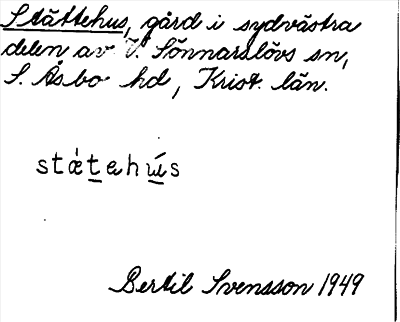 Stättehus, gård i sydvästra
delen av V. Sönnarslövs sn,
S. Åsbo hd, Krist. län.
stǽt̲ehɯ̲́s
Bertil Svensson 1949